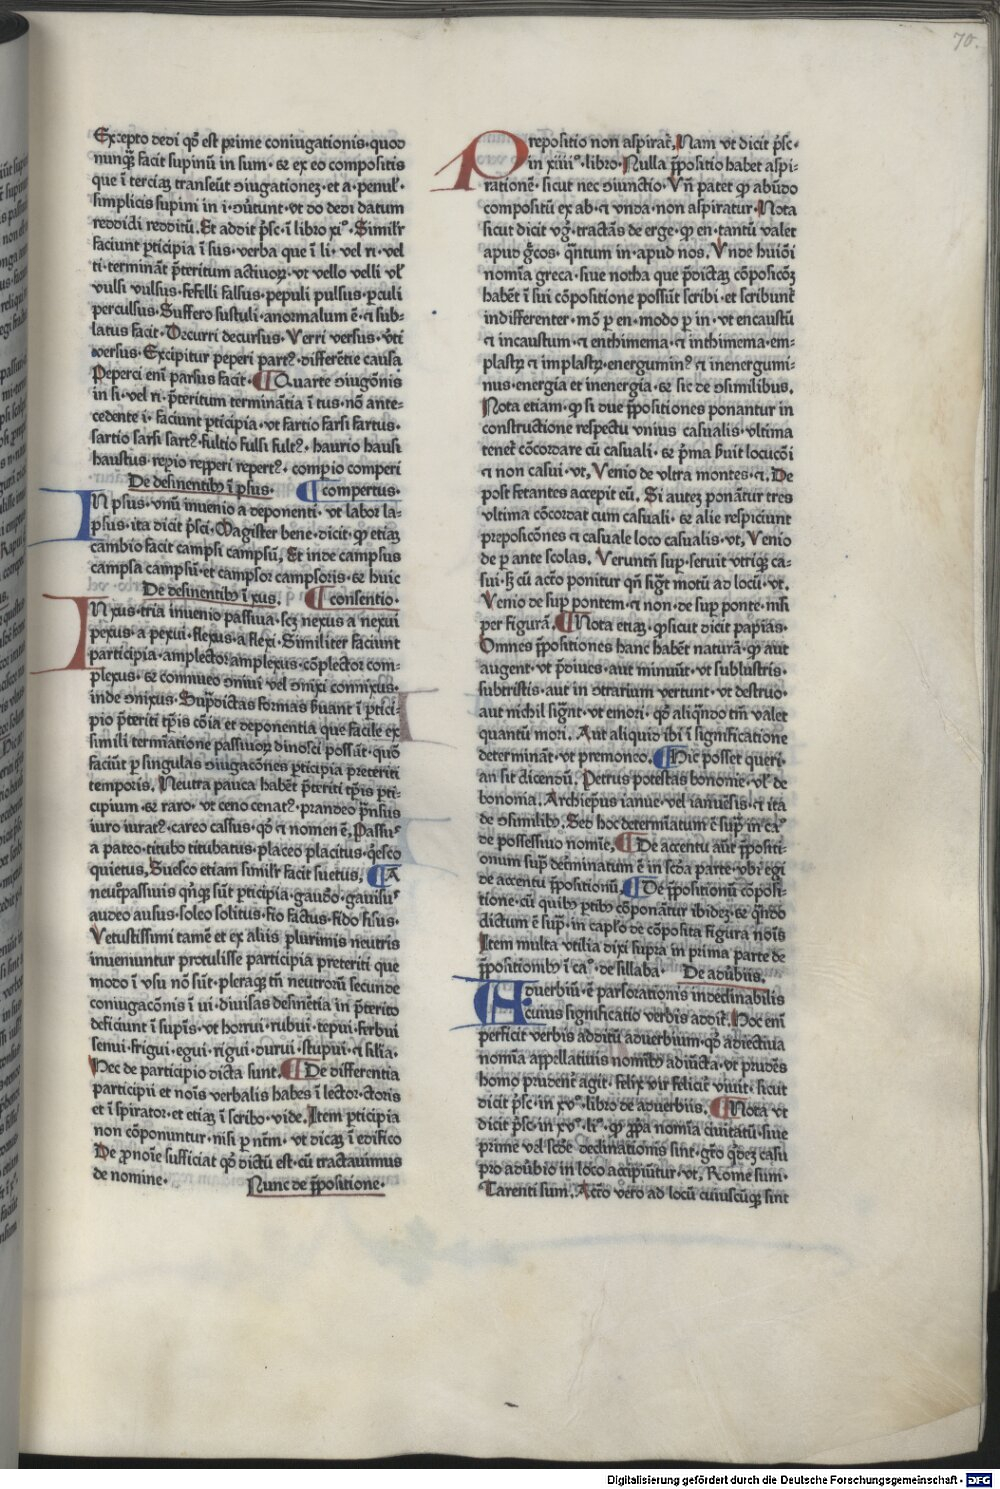 70.
Excepto dedi qd̕ est prime coniugationis. quod
nunqȝ facit supinū in sum. ⁊ ex eo compositis
que ī terciaȝ transeūt ↄiugationeȝ. et a. penul̕.
simplicis supini in i. ↄūtunt. vt do dedi datum
reddidi redditū. Et addit p̄sc. ī libro xi°. Simil̕r
faciunt p̱ticipia ī sus. verba que ī li. vel ri. vel
ti. termināt p̄teritum actiuoꝝ. vt vello velli vl̕
vulsi vulsus. fefelli falsus. pepuli pulsus. p̱culi
perculsus. Suffero sustuli. anormalum ē. ⁊ sub-
latus facit. Decurri decursus. Verri versus. v̓ti
versus. Excipitur peperi part⁹. differētie causa
Peperci eni̅ parsus facit. ¶ Quarte ↄiugōnis
in si. vel ri. p̄teritum terminātia ī tus. nō ante-
cedente i. faciunt p̱ticipia. vt fartio farsi fartus.
sartio sarsi sart⁹. fultio fulsi fult⁹. haurio hausi
haustus. repio repperi repert⁹. compio comperi
De desinentibꝫ ī psus. ¶ compertus.
IN psus. vnū inuenio a deponenti. vt labor la-
psus. ita dicit p̄sci. Magister bene. dicit. ꝙ etiaȝ
cambio facit campsi campsū. Et inde campsus
campsa campsū. et campsor campsoris. ⁊ huic
De desinentibꝫ ī xus. ¶ consentio.
IN xus. tria inuenio passiua. scȝ nexus a nexui
pexus. a pexui. flexus. a flexi. Similiter faciunt
participia. amplector amplexus. cōplector com-
plexus. ⁊ conniueo ↄniui vel ↄnixi connixus.
inde ↄnixus. Sup̄dictas formas ħuant ī p̱tici-
pio p̄teriti tp̄is cōia et deponentia que facile ex
simili termiatione passiuoꝝ dinosci possūt. quō
faciūt p̱ singulas ↄiugacōnes p̱ticipia preteriti
temporis. Neutra pauca habēt p̄teriti tp̄is p̱ti-
cipium. ⁊ raro. vt ceno cenat⁹. prandeo p̄nsus
iuro iurat⁹. careo cassus. qd̕ ⁊ nomen ē. Passu⁹
a pateo. titubo titubatus. placeo placitus. q̄esco
quietus. Suesco etiam simil̕r facit suetus. ¶ A
neur̕passiuis qn̄qȝ sūt p̱ticipia. gaudo. gauisu⁹
audeo ausus. soleo solitus. fio factus. fido fisus.
Vetustissimi tamē et ex aliis plurimis neutris
inueniuntur protulisse participia preteriti que
modo ī vsu nō sūt. pleraqȝ tn̄ neutroꝝ secunde
coniugacōnis ī ui. diuisas desinētia in p̄terito
deficiunt ī supīs. vt horrui. rubui. tepui. ferbui
senui. frigui. egui. rigui. durui. stupui. ⁊ silia.
Hec de participio dicta sunt. ¶ De differentia
participii et noīs verbalis habes ī lector. ctoris
et ī spirator. et etiaȝ ī scribo. vide. Item p̱ticipia
non cōponuntur. nisi p̱ nēm. vt dicaȝ ī edifico
De pronoīe sufficiat qd̕ dictū est. cū tractauimus
de nomine. Nunc de p̄positione.
PRepositio non aspirat̕. Nam vt dicit p̄sc.
in xiiii°. libro. Nulla p̄positio habet aspi-
rationē. sicut nec ↄiunctio. Vn̄ patet ꝙ abūdo
compositū ex ab. ⁊ vnda. non aspiratur. Nota
sicut dicit vg̕. tractās de erge. ꝙ en. tantū valet
apud g̕cos. q̄ntum in. apud nos. Vnde huiōi
nomīa greca. siue notha que p̄dictaȝ cōposicōȝ
habēt ī sui cōpositione possūt scribi. et scribunt̕
indifferenter. mō p̱ en. modo p̱ in. vt encaustū
⁊ incaustum. ⁊ enthimema. ⁊ inthimema. em-
plastꝝ ⁊ implastꝝ. energumin⁹ ⁊ inenergumi-
nus. energia et inenergia. ⁊ sic de ↄsimilibus.
Nota etiam. ꝙ si due p̄positiones ponantur in
constructione respectu vnius casualis. vltima
tenet̕ cōcordare cū casuali. ⁊ p̄ma ħuit locucōi
⁊ non casui. vt, Venio de vltra montes. ⁊. De
post fetantes accepit eū. Si auteȝ ponātur tres
vltima cōcordat cum casuali. ⁊ alie respiciunt
preposicōnes ⁊ casuale loco casualis. vt, Venio
de p̱ ante scolas. Veruntn̄ sup̱. seruit vtriqȝ ca-
sui. sȝ cū acto ponitur qn̄ sig̕t motū ad locū. vt.
Venio de sup̱ pontem. ⁊ non. de sup̱ ponte. nisi
per figurā. ¶ Nota etiaȝ. ꝙ sicut dicit papias.
Omnes p̄positiones hanc habēt naturā. ꝙ aut
augent. vt p̄diues. aut minuūt. vt sublustris.
subtristis. aut in ↄtrarium vertunt. vt destruo.
aut nichil sig̕nt. vt emori. qd̕ aliqn̄do tm̄ valet
quantū mori. Aut aliquid ibi ī significatione
determināt. vt premoneo. ¶ Hic posset queri.
an sit dicendū. Petrus potestas bononie. vl̕ de
bonomia. Archiep̄us ianue. vel ianuēsis. ⁊ ita
de ↄsimilibꝫ. Sed hoc determiatum ē sup̄ in ca°
de possessiuo nomīe. ¶ De accentu aūt p̄positi-
onum sup̄ determinatum ē in scd̄a parte. vbi egi
de accentu p̄positionū. ¶ De p̄positionū cōposi-
tione. cū quibꝫ p̱tibꝫ cōponātur ibideȝ. ⁊ qn̄do
dictum ē sup̄. in cap̄lo de cōposita figura noīs
Item multa vtilia dixi supra in prima parte de
p̄positionibꝫ ī ca°. de sillaba. De aduḃiis.
ADuerbiū. ē pars orationis indeclinabilis
cuius significatio verbis addit̕. Hoc eni̅
perficit verbis additū aduerbium. qd̕ adiectiua
nomīa appellatiuis nomībꝫ adiūcta. vt prudēs
homo prudent̕ agit. felix vir felicit̕ viuit. sicut
dicit p̄sc. in xv°. libro de aduerbiis. ¶ Nota vt
dicit p̄sc. in xv°. li°. ꝙ ꝓpa nomīa ciuitatū. siue
prime vel scd̄e declinationis sint. gtō qd̄eȝ casu
pro aduḃio in loco accipiūtur. vt, Rome sum.
Tarenti sum. Acto vero ad locū cuiuscūqȝ sint
Digitalisierung gefördert durch die Deutsche Forschungsgemeinschaft - DFG